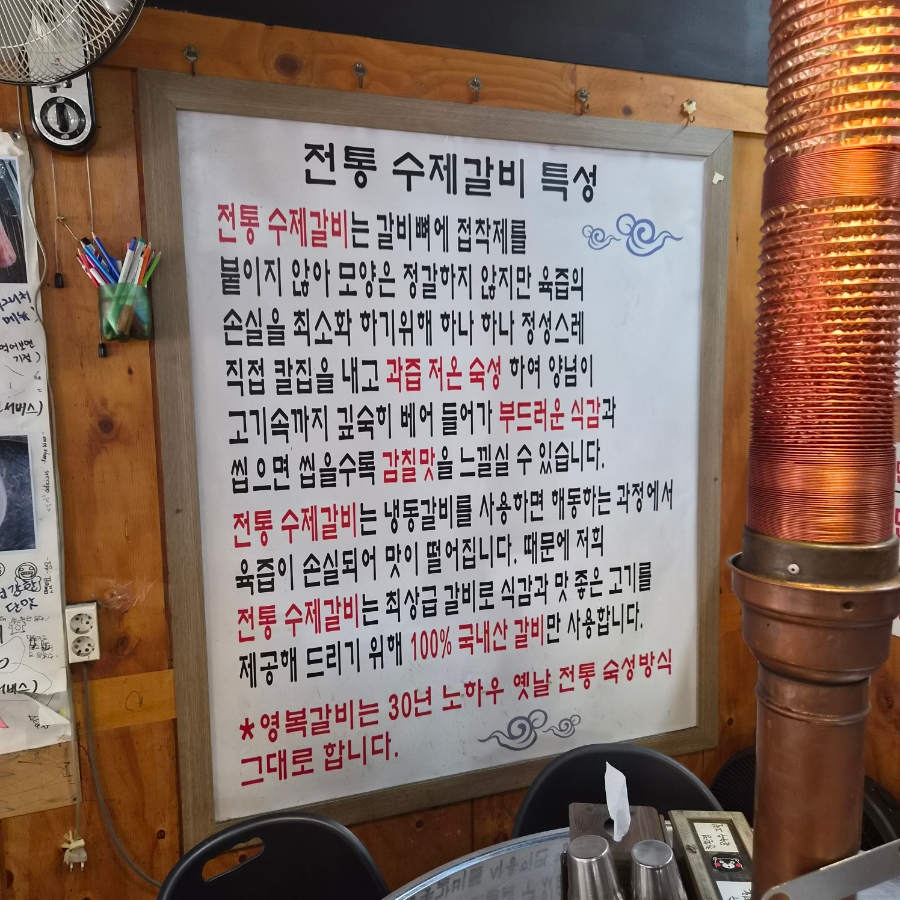 전통 수제갈비 특성
전통 수제갈비는 갈비뼈에 접착제를
붙이지 않아 모양은 정갈하지 않지만 육즙의
손실을 최소화 하기위해 하나 하나 정성스레
직접 칼집을 내고 과즙 저온 숙성 하여 양념이
고기속까지 깊숙히 베어 들어가 부드러운 식감과
씹으면 씹을수록 감칠맛을 느낄실 수 있습니다.
전통 수제갈비는 냉동갈비를 사용하면 해동하는 과정에서
육즙이 손실되어 맛이 떨어집니다. 때문에 저희
전통 수제갈비는 최상급 갈비로 식감과 맛 좋은 고기를
제공해 드리기 위해 100% 국내산 갈비만 사용합니다.
*영복갈비는 30년 노하우 옛날 전통 숙성방식
그대로 합니다.